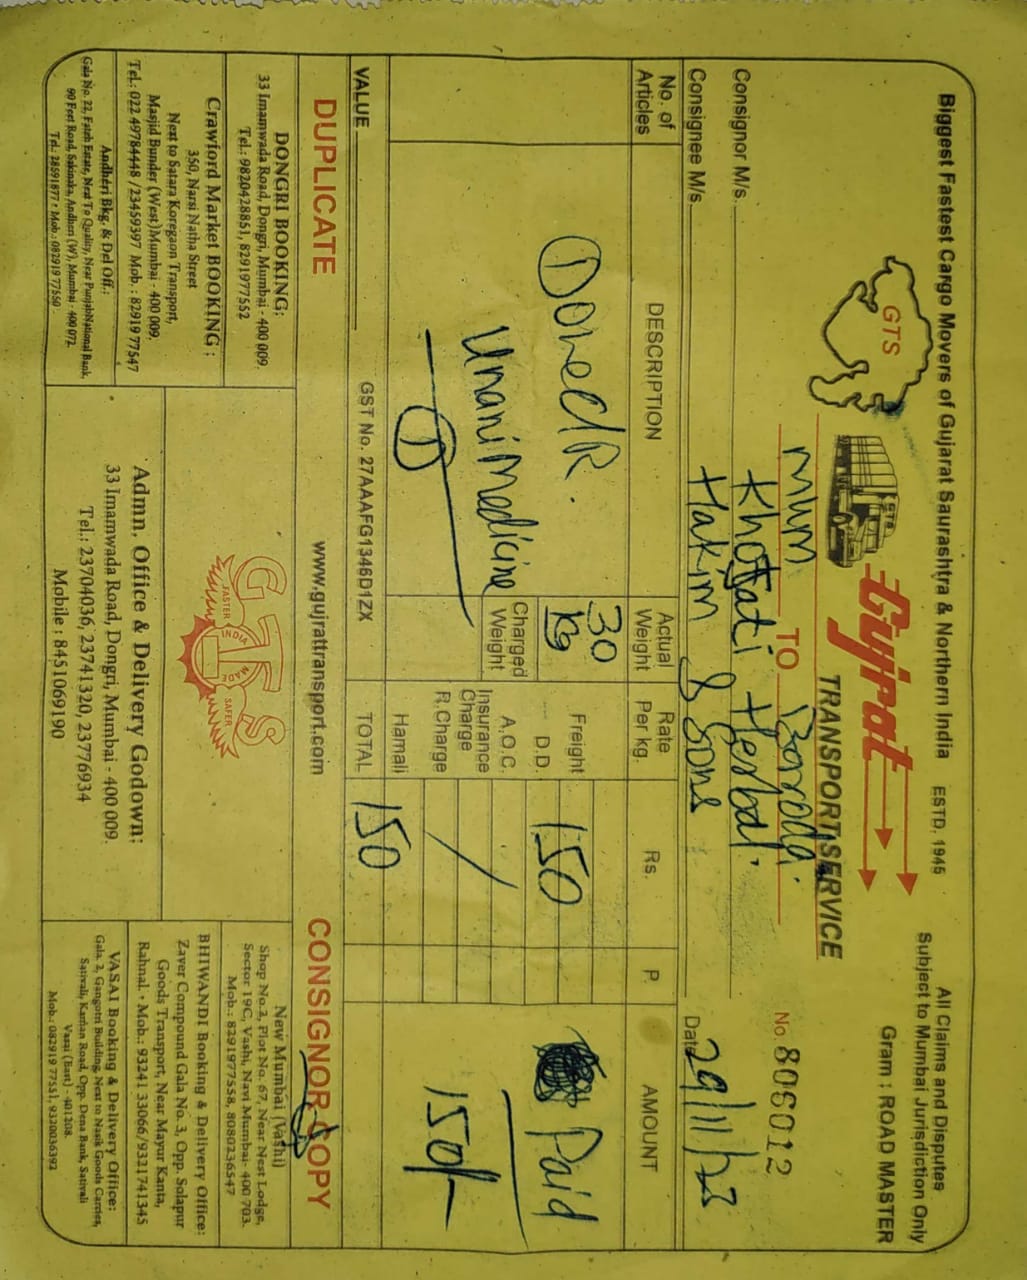 Biggest Fastest Cargo Movers of Gujarat Saurashtra & Northern India ESTD. 1945
All Claims and Disputes
Subject to Mumbai Jurisdiction Only
Gram : ROAD MASTER
GTS
GTS
Gujrat
TRANSPORT SERVICE
Mum TO Baroda.
No 806012
Consignor M/s. Khojati Herbal.
Consignee M/s. Hakim & Sons
Date 29/11/23
No. of Articles
DESCRIPTION
Actual Weight
Rate Per kg.
Rs.
P.
AMOUNT
30 Kg
Freight
D.D.
150
Paid
Unani Medicine
Charged Weight
A.O.C.
Insurance Charge
R.Charge
150/-
1
Hamali
VALUE
GST No. 27AAAFG1346D1ZX
TOTAL
150
DUPLICATE
www.gujrattransport.com
CONSIGNOR COPY
DONGRI BOOKING:
33 Imamwada Road, Dongri, Mumbai - 400 009.
Tel.: 9820428851, 8291977552
Crawford Market BOOKING :
350, Narsi Natha Street
Next to Satara Koregaon Transport,
Masjid Bunder (West)Mumbai - 400 009.
Tel.: 022 49784448 /23459397 Mob. : 82919 77547
Andheri Bkg. & Del Off.:
Gala No. 22, Fateh Estate, Next To Quality, Near Punjab National Bank,
90 Feet Road, Sakinaka, Andheri (W), Mumbai - 400 072.
Tel.: 28591877 • Mob.: 082919 77550
GTS
FASTER
INDIA
MADE
SAFER
Admn. Office & Delivery Godown:
33 Imamwada Road, Dongri, Mumbai - 400 009.
Tel.: 23704036, 23741320, 23776934
Mobile : 8451069190
New Mumbai (Vashi)
Shop No.2, Plot No. 67, Near Nest Lodge,
Sector 19C, Vashi, Navi Mumbai- 400 703.
Mob.: 8291977558, 8080236547
BHIWANDI Booking & Delivery Office:
Zaver Compound Gala No. 3, Opp. Solapur
Goods Transport, Near Mayur Kanta,
Rahnal. • Mob.: 93241 33066/9321741345
VASAI Booking & Delivery Office:
Gala. 2, Gangotri Building, Next to Nasik Goods Carries,
Sativali, Karfan Road, Opp. Dena Bank, Sativali
Vasai (East) - 401208.
Mob.: 082919 77551, 9320036392